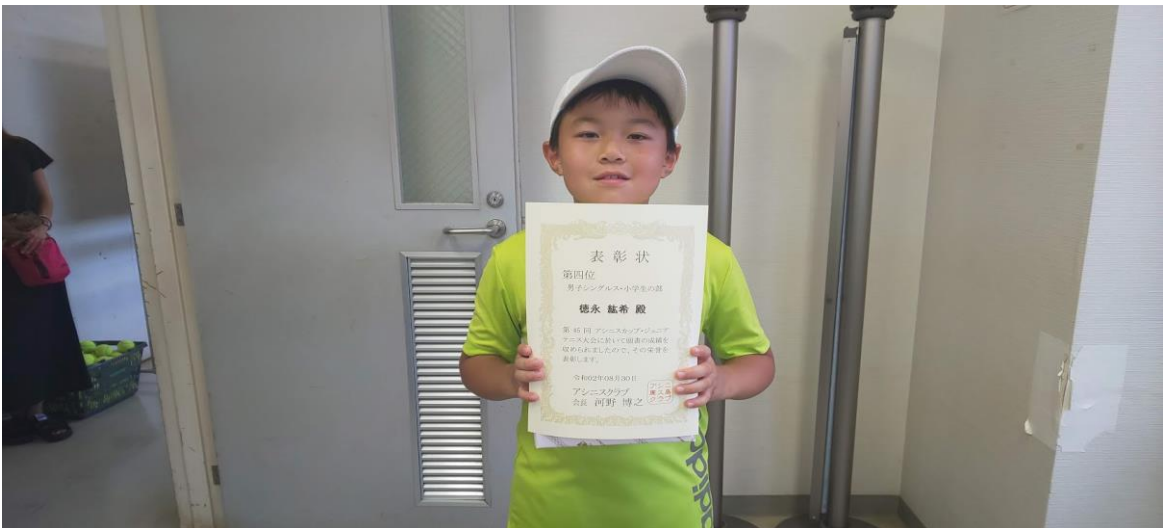 表彰状
第四位
男子シングルス・小学生の部
徳永 紘希 殿
第 46 回 アシニスカップ・ジュニア
テニス大会に於いて頭書の成績を
収められましたので、その栄誉を
表彰します。
令和02年08月30日
アシニスクラブ
会長 河野 博之
adidas